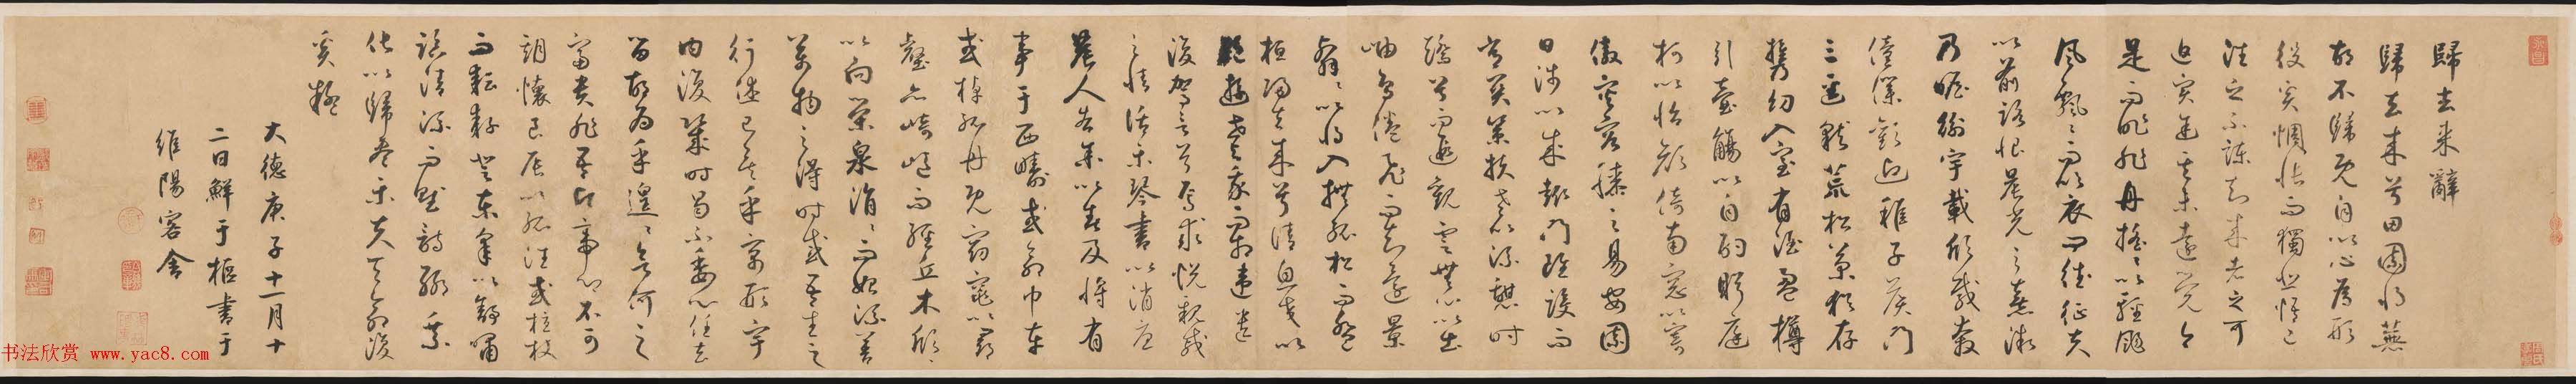 歸去来辭
歸去来兮田園将蕪
胡不歸既自以心爲形
役奚惆悵而獨悲悟已
往之不諫知来者之可
追實迷途其未遠覺今
是而昨非舟摇〻以輕颺
風飄〻而吹衣問征夫
以前路恨晨光之熹微
乃瞻衡宇載欣載奔
僮僕歡迎稚子候門
三逕就荒松菊猶存
携幼入室有酒盈樽
引壺觴以自酌眄庭
柯以怡顔倚南窓以寄
傲審容膝之易安園
日涉以成趣門雖設而
常關策扶老以流憩時
矯首而遐觀雲無心以出
岫鳥倦飛而知還景
翳〻以将入撫孤松而盤
桓歸去来兮請息交以
絶遊世與我而相遺
復駕言兮焉求悦親戚
之情話樂琴書以消憂
農人告余以春及将有
事于西疇或命巾車
或棹孤舟既窈窕以尋
壑亦崎嶇而經丘木欣〻
以向榮泉涓〻而始流善
萬物之得時感吾生之
行休已矣乎寓形宇
内復幾時曷不委心任去
留胡為乎遑〻欲何之
富貴非吾願帝鄉不可
期懷良辰以孤往或植杖
而耘耔登東皋以舒嘯
臨清流而賦詩聊乘
化以歸盡樂夫天命復
奚疑
大德庚子十一月十
二日鮮于樞書于
維陽客舍
书法欣赏 www.yac8.com